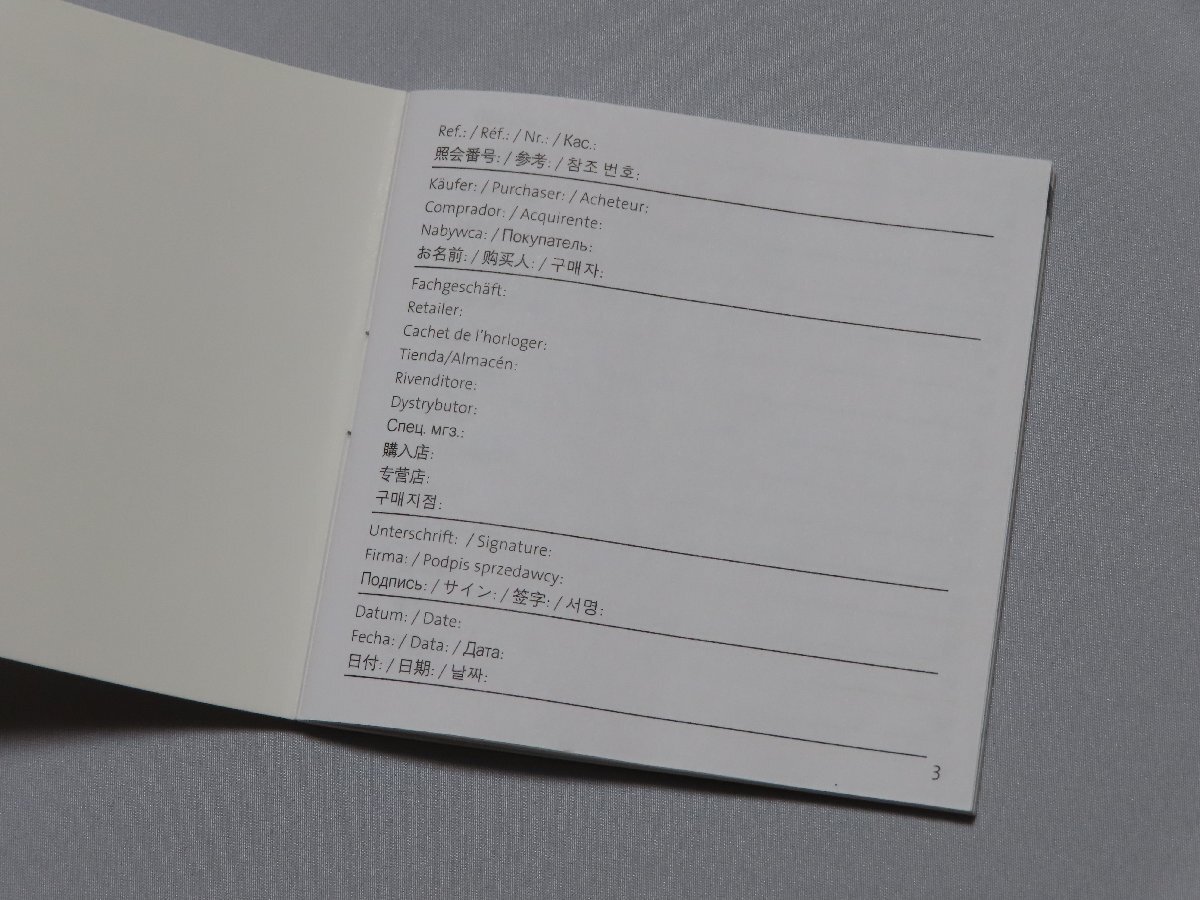 Ref.: / Réf.: / Nr.: / Kac.:
照会番号: / 参考: / 참조 번호:
Käufer: / Purchaser: / Acheteur:
Comprador: / Acquirente:
Nabywca: / Покупатель:
お名前: / 购买人: / 구매자:
Fachgeschäft:
Retailer:
Cachet de l'horloger:
Tienda/Almacén:
Rivenditore:
Dystrybutor:
Спец. мгз.:
購入店:
专营店:
구매지점:
Unterschrift: / Signature:
Firma: / Podpis sprzedawcy:
Подпись: / サイン: / 签字: / 서명:
Datum: / Date:
Fecha: / Data: / Дата:
日付: / 日期: / 날짜:
3